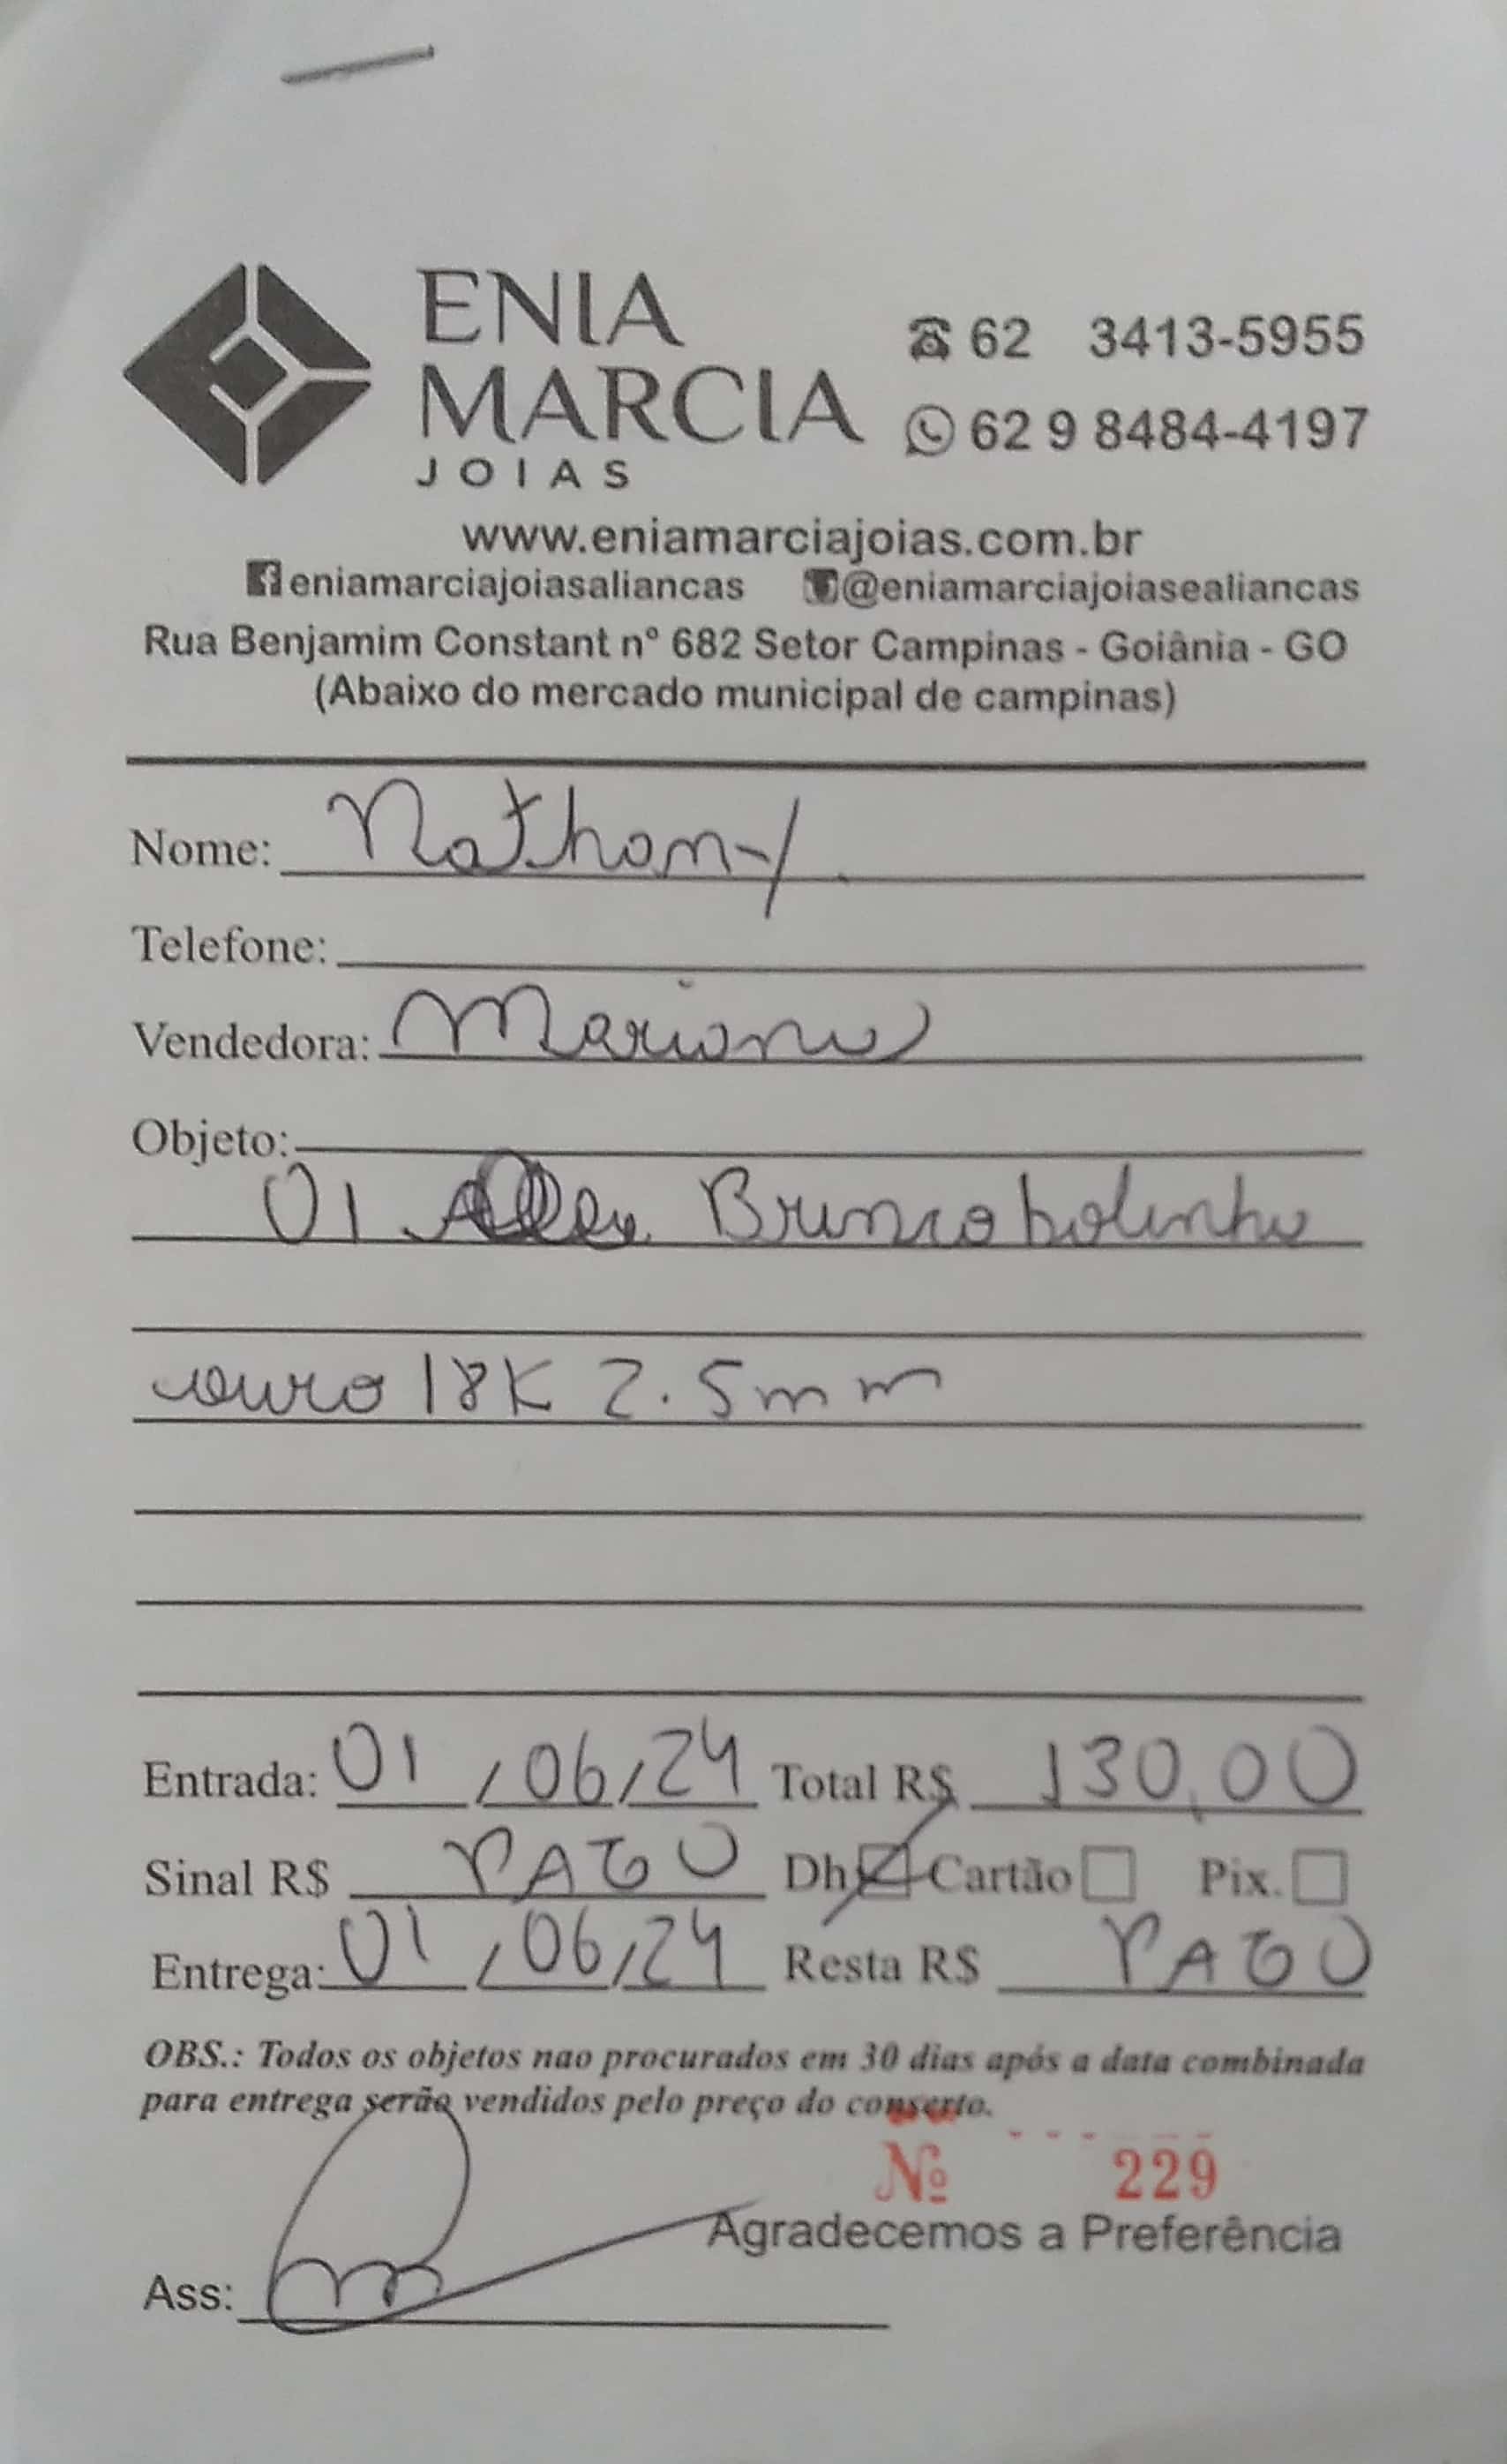 ENIA
MARCIA
JOIAS
62 3413-5955
62 9 8484-4197
www.eniamarciajoias.com.br
eniamarciajoiasaliancas @eniamarciajoiasealiancas
Rua Benjamim Constant nº 682 Setor Campinas - Goiânia - GO
(Abaixo do mercado municipal de campinas)
Nome: Nathany
Telefone:
Vendedora: Mariana
Objeto:
01 Brinco bolinha
ouro 18K 2.5mm
Entrada: 01/06/24 Total R$ 130,00
Sinal R$ PAGO Dh Cartão Pix.
Entrega: 01/06/24 Resta R$ PAGO
OBS.: Todos os objetos nao procurados em 30 dias após a data combinada
para entrega serão vendidos pelo preço do conserto.
Nº 229
Agradecemos a Preferência
Ass: